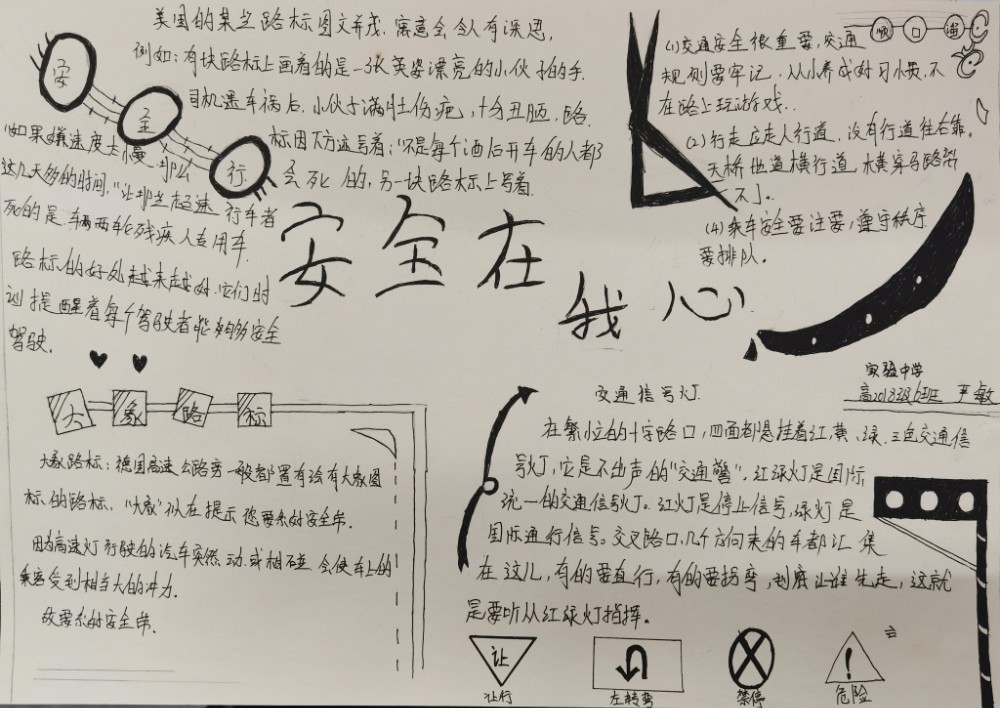 安全行
美国的某些路标图文并茂.寓意会令人有深思,
例如:有块路标上画着的是一张英姿漂亮的小伙子的手.
司机遇车祸后,小伙子满壮伤疤,十分丑陋.路
标图下方还写着:"不是每个酒后开车的人都
会死的,另一块路标上写着
"如果嫌速度太慢,那么
这几天多的时间,"让那些超速行车者
死的是.车辆两车轮残疾人专用车.
路标的好处越来越好.它们时
刻提醒着每个驾驶者能够多安全
驾驶.
顺口溜
(1)交通安全很重要,交通
规则要牢记,从小养成好习惯,不
在路上玩游戏.
(2)行走应走人行道,没有行道往右靠,
天桥地道横行道,横穿马路帮
不了.
(4)乘车安全要注要,遵守秩序
要排队.
安全在
我心
实验中学
高2018级6班 严敏
大象路标
大象路标:德国高速公路旁一般都置有绘有大象图
标的路标,"大象"似在提示您要系好安全带.
因为高速灯行驶的汽车突然动.或相碰会使车上的
乘客受到相当大的冲力.
故要系好安全带.
交通信号灯
在繁忙的十字路口,四面都悬挂着红.黄、绿.三色交通信
号灯,它是不出声的"交通警".红绿灯是国际
统一的交通信号灯。红灯是停止信号,绿灯是
国际通行信号。交叉路口,几个方向来的车都汇集
在这儿,有的要直行,有的要拐弯,到底让谁先走,这就
是要听从红绿灯指挥。
让
让行
左转弯
禁停
!
危险